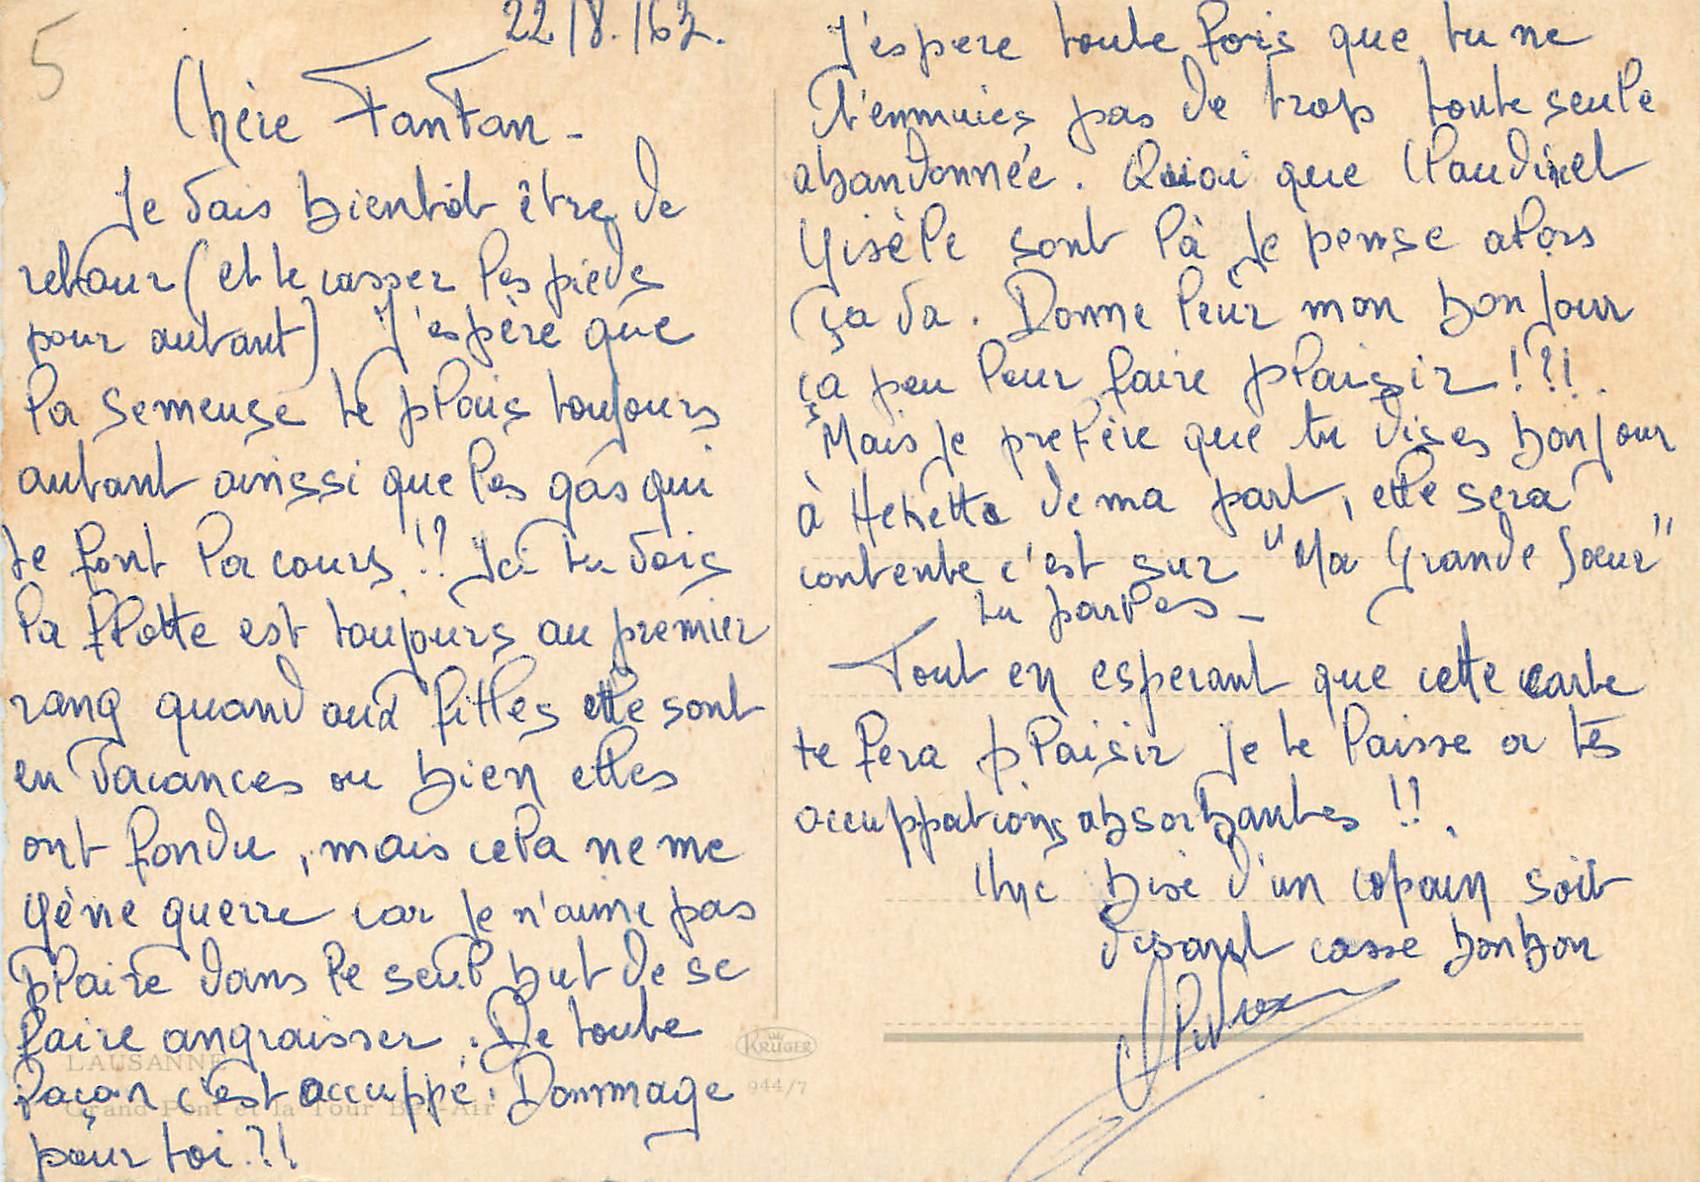 5
22/8./63.
Chère FanFan -
Je vais bientôt être de
retour (et te casser les pieds
pour autant) J'espère que
la semeuse te plais toujours
autant ainssi que les gas qui
te font la cours !? Ici tu vois
la flotte est toujours au premier
rang quand aux filles elle sont
en vacances ou bien elles
ont fondu, mais cela ne me
gène guerre car je n'aime pas
plaire dans le seul but de se
faire angraisser. De toute
façon c'est occuppé. Dommage
pour toi.?!
LAUSANNE
Grand Pont et la Tour Bel-Air
J'espere toute fois que tu ne
t'ennuies pas de trop toute seule
abandonnée. Quoi que Claudi et
Gisèle sont là je pense alors
ça va. Donne leur mon bonjour
ça peu leur faire plaisir !?!.
Mais je prefère que tu dises bonjour
à de ma part, elle sera
contente c'est sur "Ma Grande Sœur"
tu parles -
Tout en esperant que cette carte
te fera plaisir je te laisse a tes
occuppations absorbantes !!.
Une bise d'un copain soit
disant casse bonbon
KRÜGER
944/7